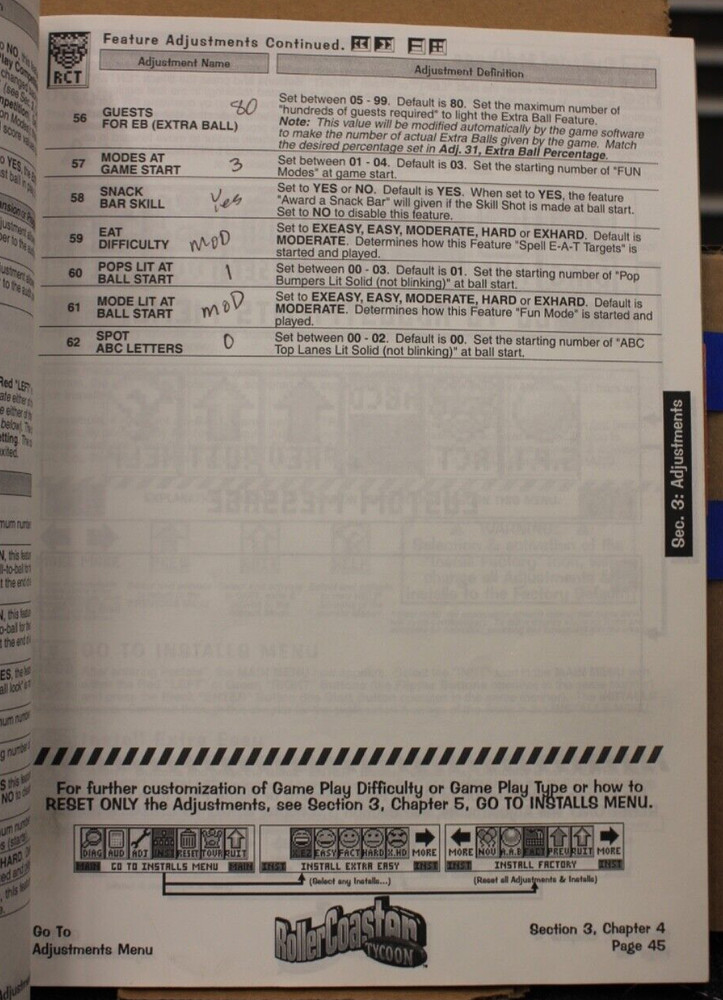 RCT
Feature Adjustments Continued.
Adjustment Name
Adjustment Definition
56
GUESTS
FOR EB (EXTRA BALL)
80
Set between 05 - 99. Default is 80. Set the maximum number of
"hundreds of guests required" to light the Extra Ball Feature.
Note: This value will be modified automatically by the game software
to make the number of actual Extra Balls given by the game. Match
the desired percentage set in Adj. 31, Extra Ball Percentage.
57
MODES AT
GAME START
3
Set between 01 - 04. Default is 03. Set the starting number of "FUN
Modes" at game start.
58
SNACK
BAR SKILL
Yes
Set to YES or NO. Default is YES. When set to YES, the feature
"Award a Snack Bar" will given if the Skill Shot is made at ball start.
Set to NO to disable this feature.
59
EAT
DIFFICULTY
MOD
Set to EXEASY, EASY, MODERATE, HARD or EXHARD. Default is
MODERATE. Determines how this Feature "Spell E-A-T Targets" is
started and played.
60
POPS LIT AT
BALL START
1
Set between 00 - 03. Default is 01. Set the starting number of "Pop
Bumpers Lit Solid (not blinking)" at ball start.
61
MODE LIT AT
BALL START
MOD
Set to EXEASY, EASY, MODERATE, HARD or EXHARD. Default is
MODERATE. Determines how this Feature "Fun Mode" is started and
played.
62
SPOT
ABC LETTERS
0
Set between 00 - 02. Default is 00. Set the starting number of "ABC
Top Lanes Lit Solid (not blinking)" at ball start.
Sec. 3: Adjustments
For further customization of Game Play Difficulty or Game Play Type or how to
RESET ONLY the Adjustments, see Section 3, Chapter 5, GO TO INSTALLS MENU.
DIAG AUD ADJ INST RESET TOUR QUIT
MAIN GO TO INSTALLS MENU MAIN
X.EZ EASY FACT HARD X.HD MORE
INST INSTALL EXTRA EASY INST
MORE NOV A.A.B FACT PREV QUIT
INST INSTALL FACTORY INST
(Select any Installs...)
(Reset all Adjustments & Installs)
Go To
Adjustments Menu
RollerCoaster
TYCOON
Section 3, Chapter 4
Page 45